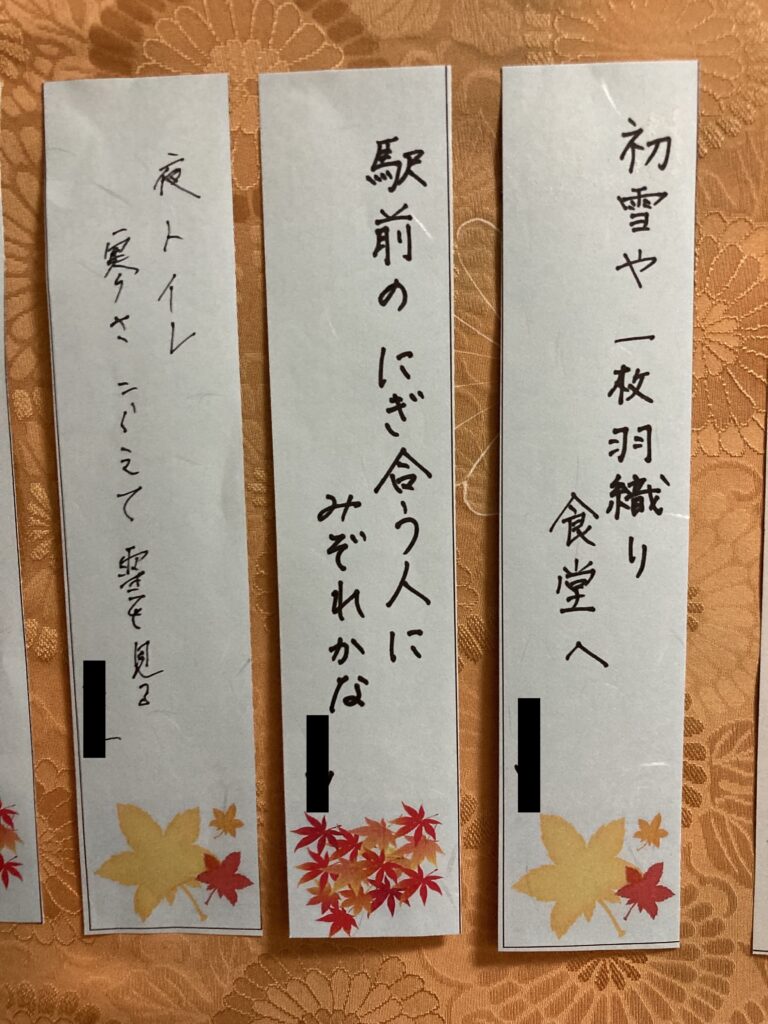 初雪や一枚羽織り
食堂へ
駅前のにぎ合う人に
みぞれかな
夜トイレ
寒さこらえて雪を見る